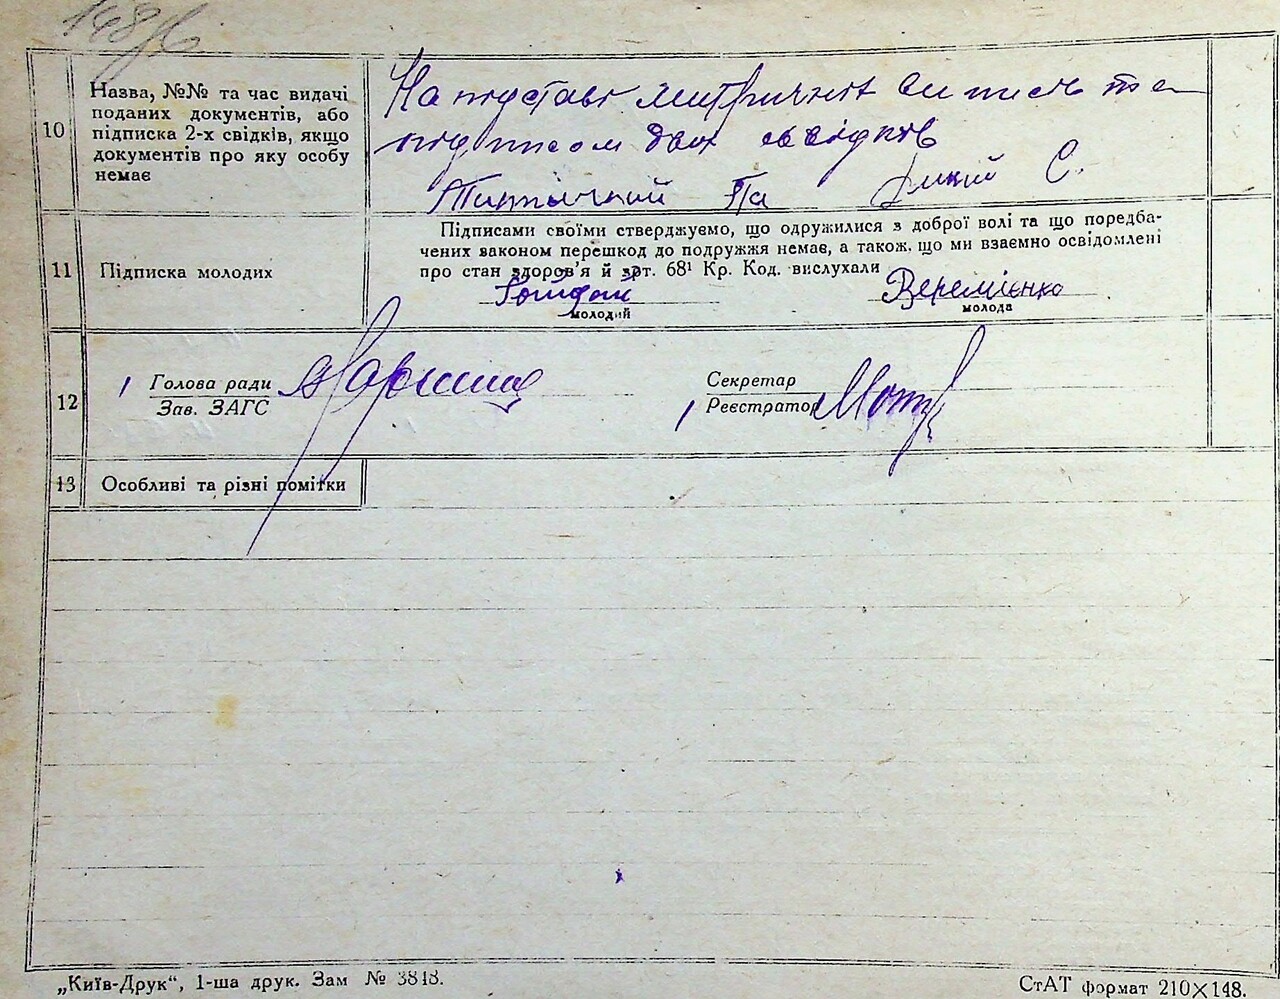 10
Назва, №№ та час видачі
поданих документів, або
підписка 2-х свідків, якщо
документів про яку особу
немає
На підставі митричних виписів та
підписом двох свідків
С.
11
Підписка молодих
Підписами своїми стверджуємо, що одружилися з доброї волі та що поредба-
чених законом перешкод до подружжя немає, а також, що ми взаємно освідомлені
про стан здоров'я й арт. 68¹ Кр. Код. вислухали
Веремієнко
молодий
молода
12
Голова ради
Зав. ЗАГС
Секретар
Реєстратор
13
Особливі та різні помітки
„Київ-Друк“, 1-ша друк. Зам № 3848.
СтАТ формат 210×148.